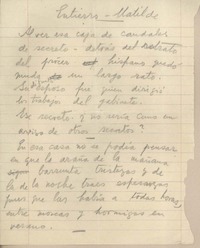 Entierro - Matilde
Al ver esa caja de caudales
de secreto - detrás del retrato
del prócer hispano quedó
muda un largo rato.
Su esposo fue quien dirigió
los trabajos del gabinete.
Un secreto: ¿y no sería como un
aviso de otros ?
En esa casa no se podía pensar
en que la araña de la mañana
barrunta y
la de la noche trae esperanzas
pues que las había a todas horas
entre moscas y hormigas en
verano.